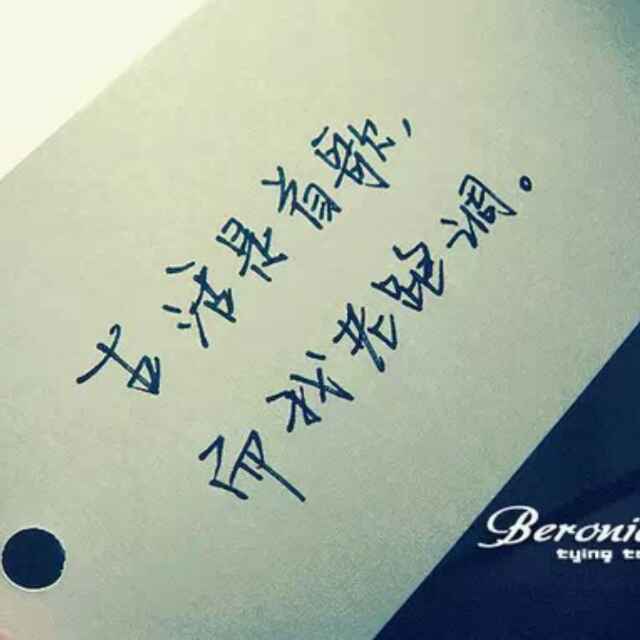 生活是首歌，
而我老跑调。
Beroni
tying